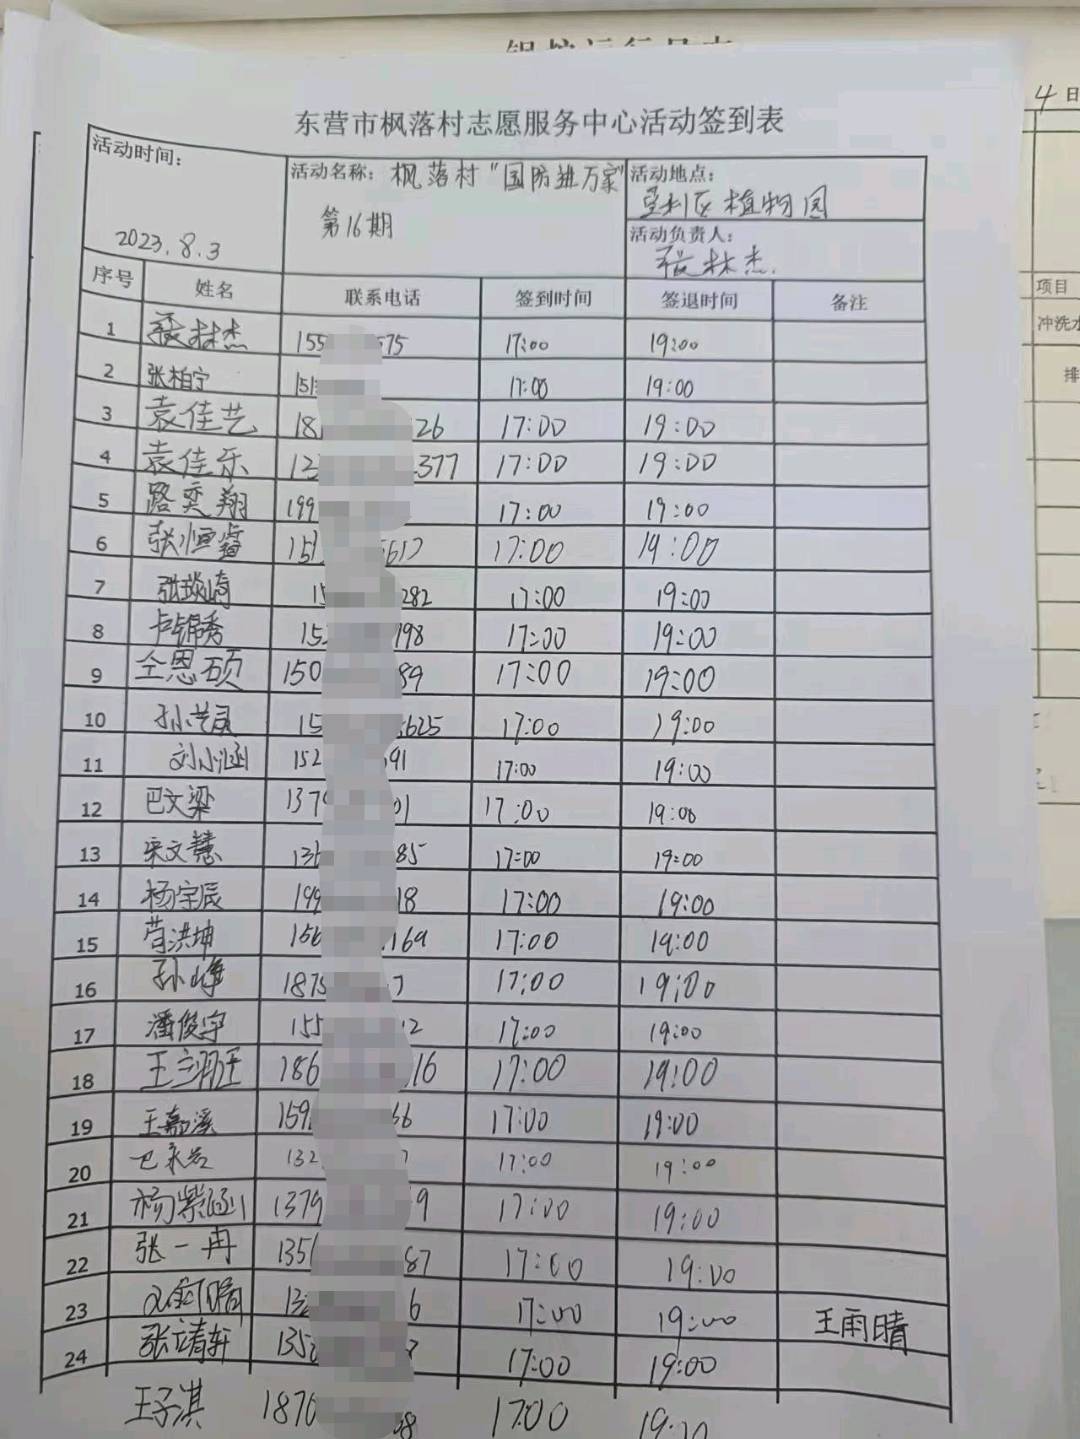 4日
东营市枫落村志愿服务中心活动签到表
活动时间： 活动名称：枫落村“国防进万家” 活动地点：
垦利区植物园
2023.8.3 第16期 活动负责人：
张林杰
项目
序号 姓名 联系电话 签到时间 签退时间 备注
冲洗水
1 张林杰 155 575 17:00 19:00
排
2 张柏宁 151 17:00 19:00
3 袁佳艺 18 26 17:00 19:00
4 袁佳乐 377 17:00 19:00
5 路奕翔 199 17:00 19:00
6 张恒睿 151 617 17:00 19:00
7 张琰崎 15 282 17:00 19:00
8 卢锦秀 15 98 17:00 19:00
9 仝恩硕 150 89 17:00 19:00
10 孙艺宸 15 625 17:00 19:00
11 刘小涵 152 91 17:00 19:00
12 巴文梁 137 01 17:00 19:00
13 宋文慧 136 85 17:00 19:00
14 杨宇辰 199 18 17:00 19:00
15 苟洪坤 156 169 17:00 19:00
16 孙峥 1875 7 17:00 19:00
17 潘俊宇 155 12 17:00 19:00
18 王 186 16 17:00 19:00
19 王嘉溪 159 66 17:00 19:00
20 巴 132 17:00 19:00
21 杨紫涵 1379 9 17:00 19:00
22 张一冉 135 87 17:00 19:00
23 13 6 17:00 19:00 王雨晴
24 张靖轩 135 17:00 19:00
王子淇 1870 8 17:00